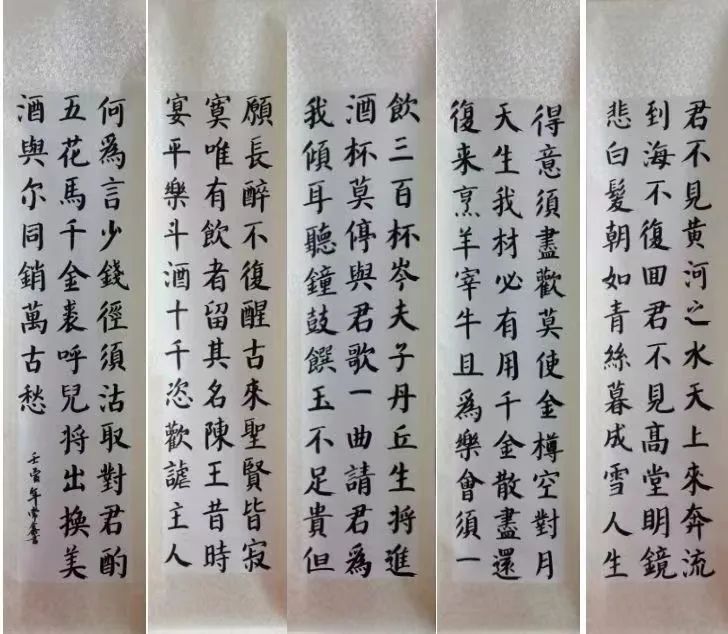 君不見黄河之水天上來奔流
到海不復囬君不見高堂明鏡
悲白髮朝如青絲暮成雪人生
得意須盡歡莫使金樽空對月
天生我材必有用千金散盡還
復来烹羊宰牛且爲樂會須一
飲三百杯岑夫子丹丘生将進
酒杯莫停與君歌一曲請君爲
我傾耳聽鐘鼓饌玉不足貴但
願長醉不復醒古來聖賢皆寂
寞唯有飲者留其名陳王昔時
宴平樂斗酒十千恣歡謔主人
何爲言少錢徑須沽取對君酌
五花馬千金裘呼兒将出換美
酒與尔同銷萬古愁
壬寅年